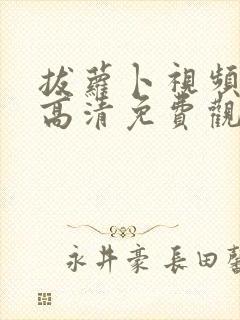 拔蘿卜視頻
高清免費觀
永井豪 長田馨